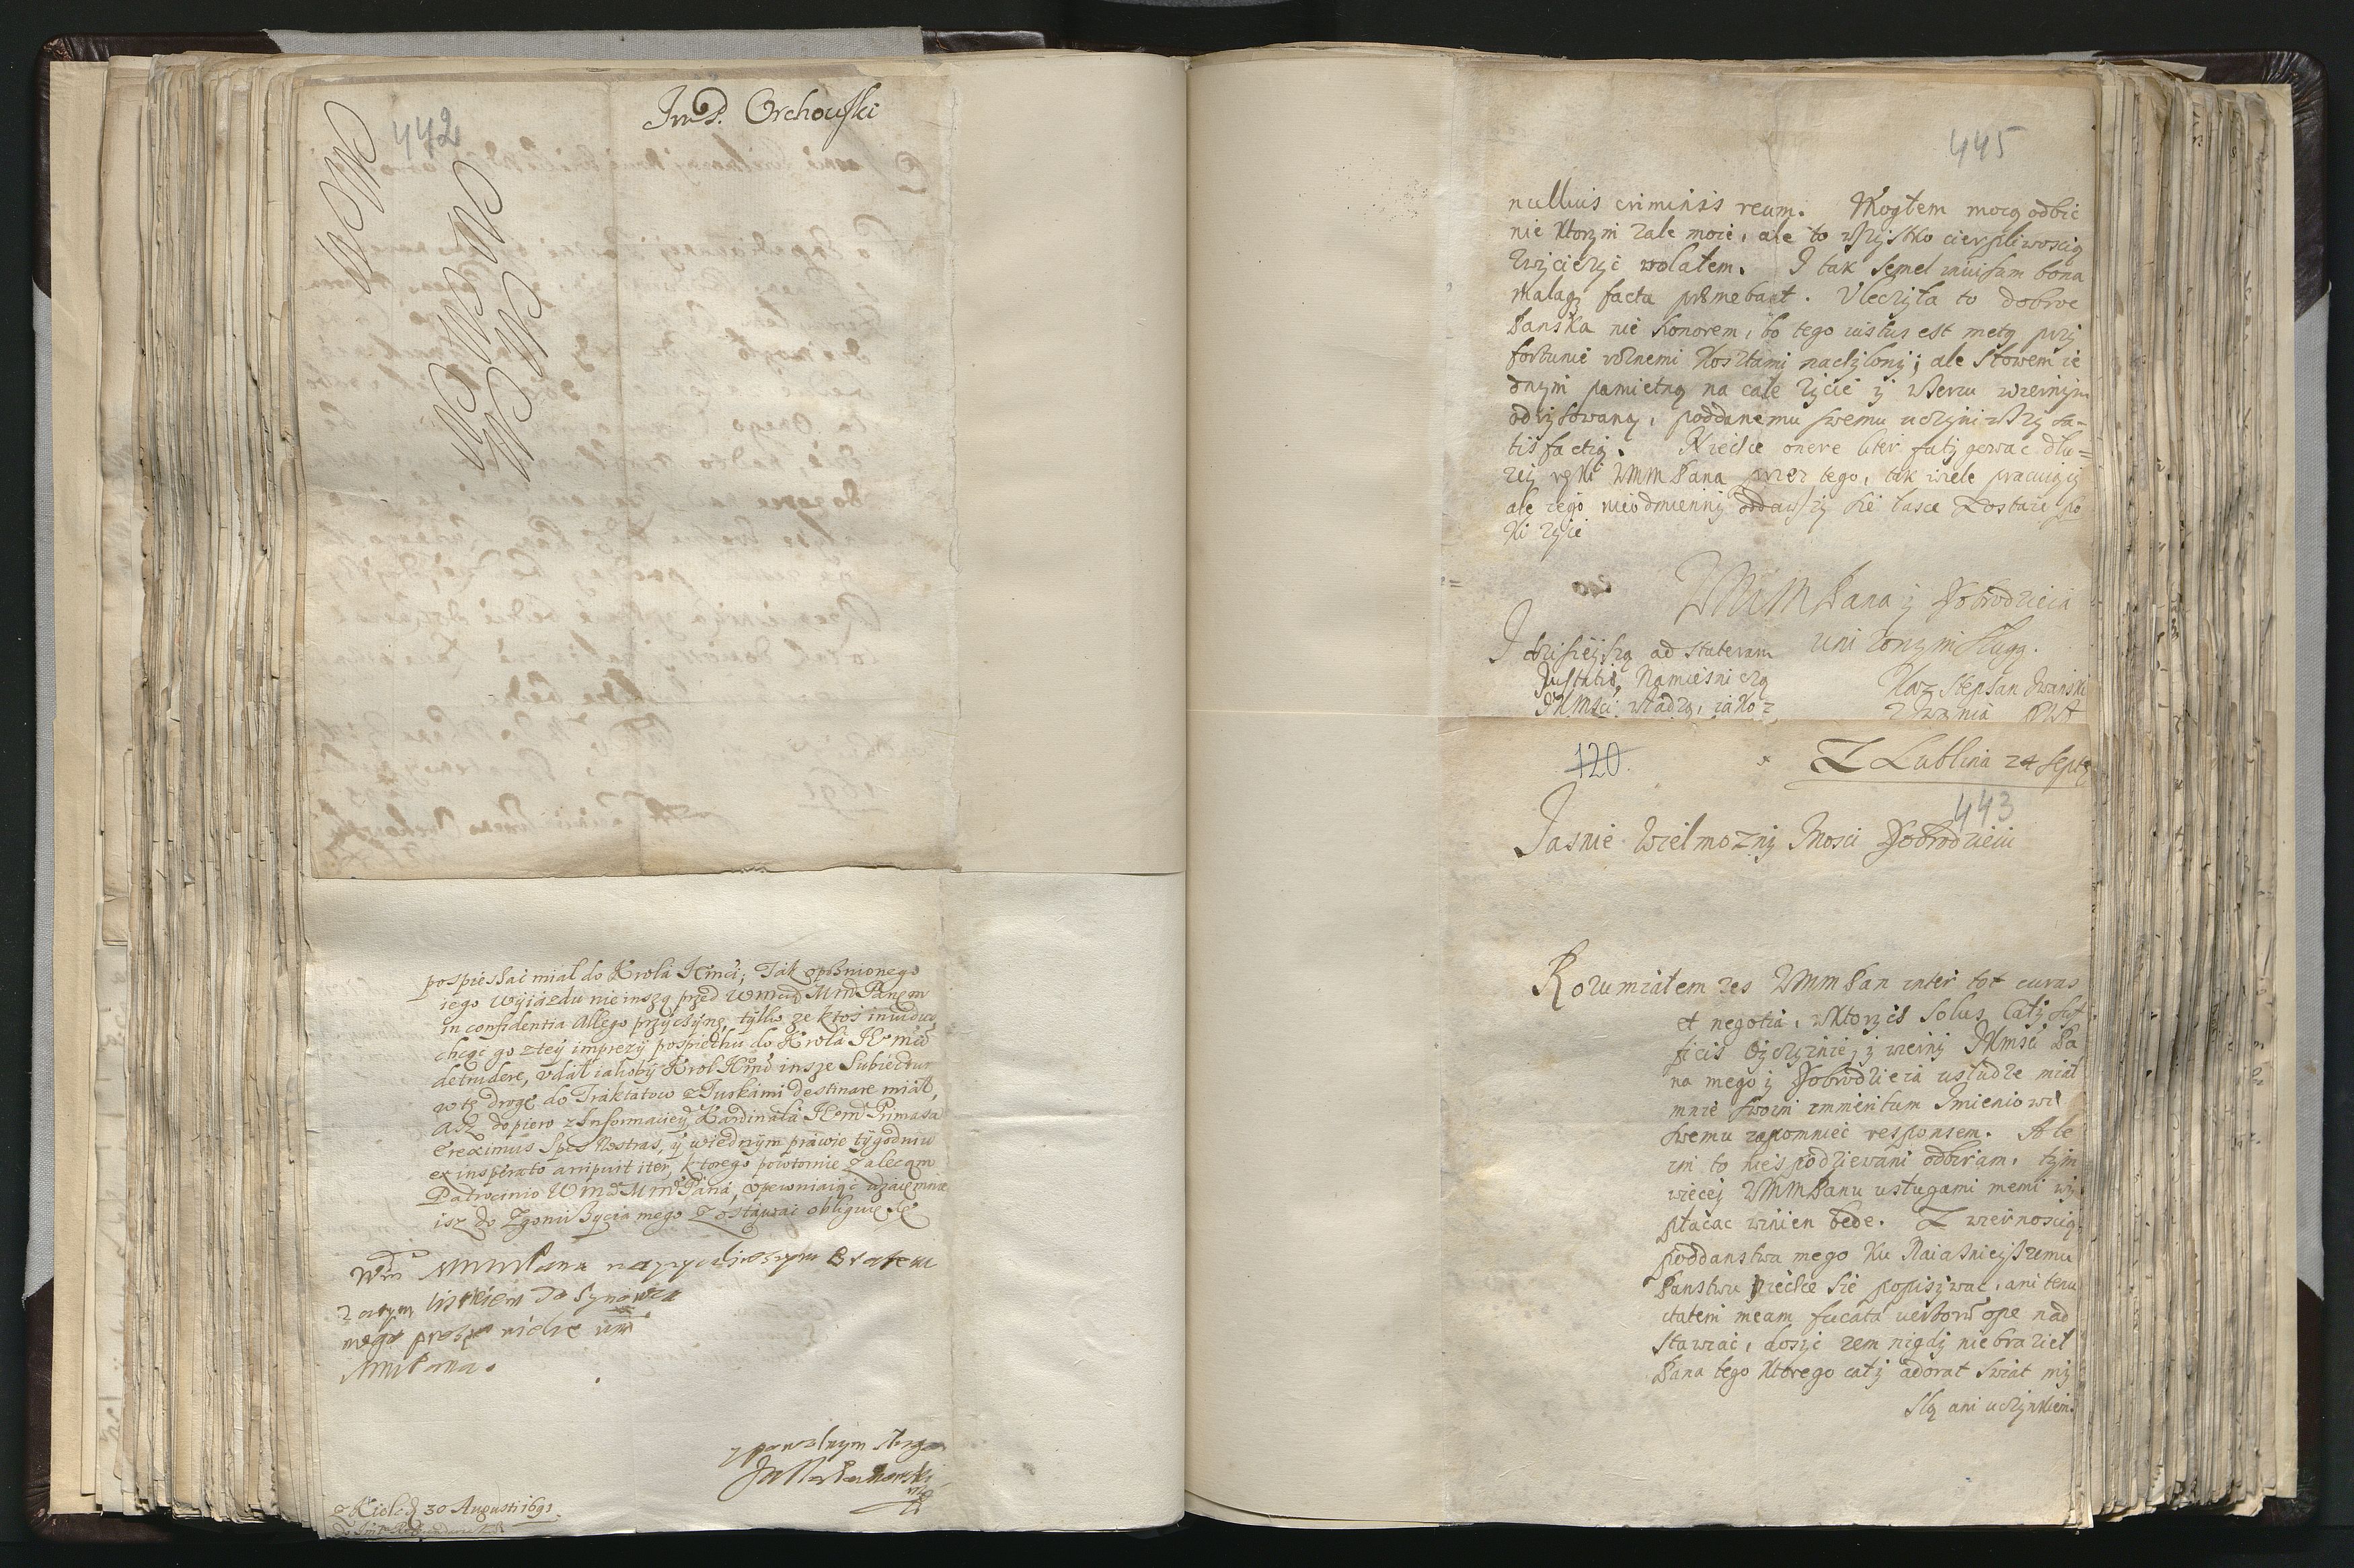 442
Jm P. Orchowski
pospieszac miał do Krola JKmci; Tak opoznionego
iego wyiazdu nie inszą przed WmMmPanem
in confidentia Allego przyczynę, tylko ze ktos invidus
chcąc go z tey imprezy pospiechu do Krola JKmci
detrudere, udał iakoby Krol JKmc insze Subiectum
w tę drogę do Traktatow z Turkami destinare miał,
Asz dopiero z Informaciey Kardinała JEm Primasa
Ereximus Spes Nostras, y w iednym prawie tygodniu
ex insperato arripuit iter, ktorego powtornie zalecam
Patrocinio WmMmPana, upewniaiąc wzaiemnie
isz do Zgonu Zycia mego Zostawac obliguię się
Wm MmPana nazyczliwszym Bratem
Z at listkiem do Synowca
mego proszę niech
MmPana.
z powolnym
z Kielc 30 Augusti 1691.
445
nullius criminis reum. Mogłem mocą odbic
nie ktorzm zale moie, ale to wszystko cierpliwoscią
zwyciezyc wolałem. I tak semel invisam bona
malaq facta premebant. Uleczyła to dobroc
Panska nie honorem, bo tego iustus est metą przy
fortunie roznemi kosztami nachylony; ale słowem ie
dnym pamiętną na całe zycie y w sercu wiernym
odrysowaną, poddanemu swemu uczyniwszy sa=
tisfactią. Niechce onere liter fatygowac dłu=
zey rąk WMMPana przez tego, tak wiele pracuiący
ale iego nieodmienny oddawszy się łasce zostaie po
ki zyie
WMMPana y Dobrodzieia
uni zonym sługą.
I dzisieyszą ad stateram
Justitiæ, Namiesniczą
JKMsci władzą, iako z
Kaz Stephan
120.
Z Lublina 24 Septg
443
Jasnie Wielmozny Mosci Dobrodzieiu
Rozumiałem zes WMMPan inter tot curas
et negotia, w ktorych Solus Cały suf
ficis Oyczyznie, y wierny JKMsci Pa
na mego y Dobrodzieia usłudze miał
mnie swoim immeritum Imieniowi
swemu zapomniec responsem. Ale
im to niespodziewani odbieram, tym
więcey WMMPanu usługami memi wy
płacac winien bede. Z wiernoscią
poddanstwa mego ku Naiasnieyszemu
Panstwu niechce się popisywac, ani tenu
itatem meam fucata verborum ope nad
stawiac, dosyc zem nigdy nieobraził
Pana tego ktorego cały adorat swiat my
slą ani uczynkiem